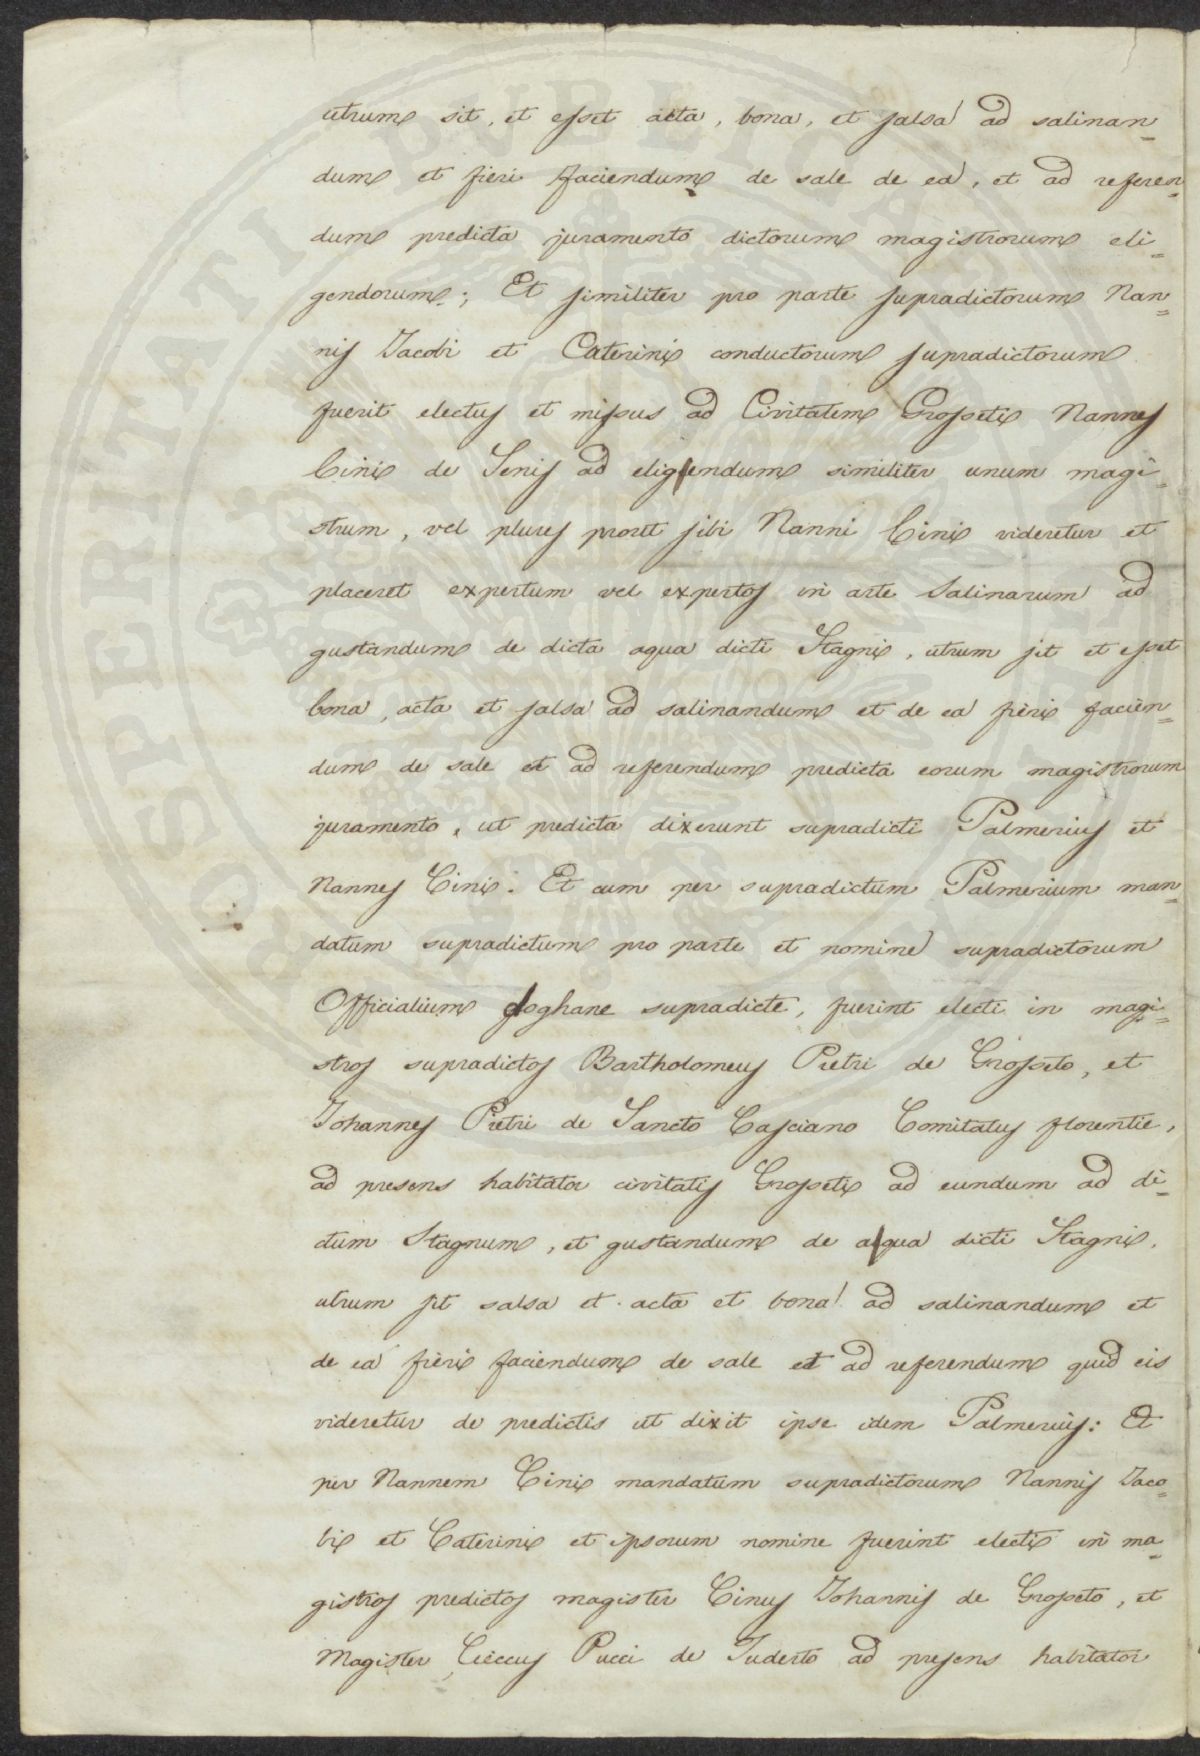 utrum sit, et esset acta, bona, et salsa ad salinan=
dum et fieri faciendum de sale de ea, et ad referen=
dum predicta juramento dictorum magistrorum eli=
gendorum; Et similiter pro parte supradictorum Nan=
nis Jacobi et Caterini conductorum supradictorum
fuerit electus et missus ad Civitatem Grosseti Nannes
Cini de Senis ad eligendum similiter unum magi=
strum, vel plures prout sibi Nanni Cini videretur et
placeret expertum vel expertos in arte Salinarum ad
gustandum de dicta aqua dicti Stagni, utrum sit et esset
bona, acta et salsa ad salinandum et de ea fieri facien=
dum de sale et ad referendum predicta eorum magistrorum
juramento, ut predicta dixerunt supradicti Palmerius et
Nannes Cini. Et cum per supradictum Palmerium man=
datum supradictum pro parte et nomine supradictorum
Officialium doghane supradicte, fuerint electi in magi=
stros supradictos Bartholomeus Pietri de Grosseto, et
Johannes Pietri de Sancto Casciano Comitatus florentie,
ad presens habitator civitatis Grosseti ad eundum ad di=
ctum Stagnum, et gustandum de aqua dicti Stagni,
utrum sit salsa et acta et bona ad salinandum et
de ea fieri faciendum de sale et ad referendum quid eis
videretur de predictis ut dixit ipse idem Palmerius: Et
per Nannem Cini mandatum supradictorum Nannis Jaco=
bi et Caterini et ipsorum nomine fuerint electi in ma=
gistros predictos magister Cinus Johannis de Grosseto, et
Magister Cieccus Pucci de Tuderto ad presens habitator
PROSPERITATI PUBLICAE